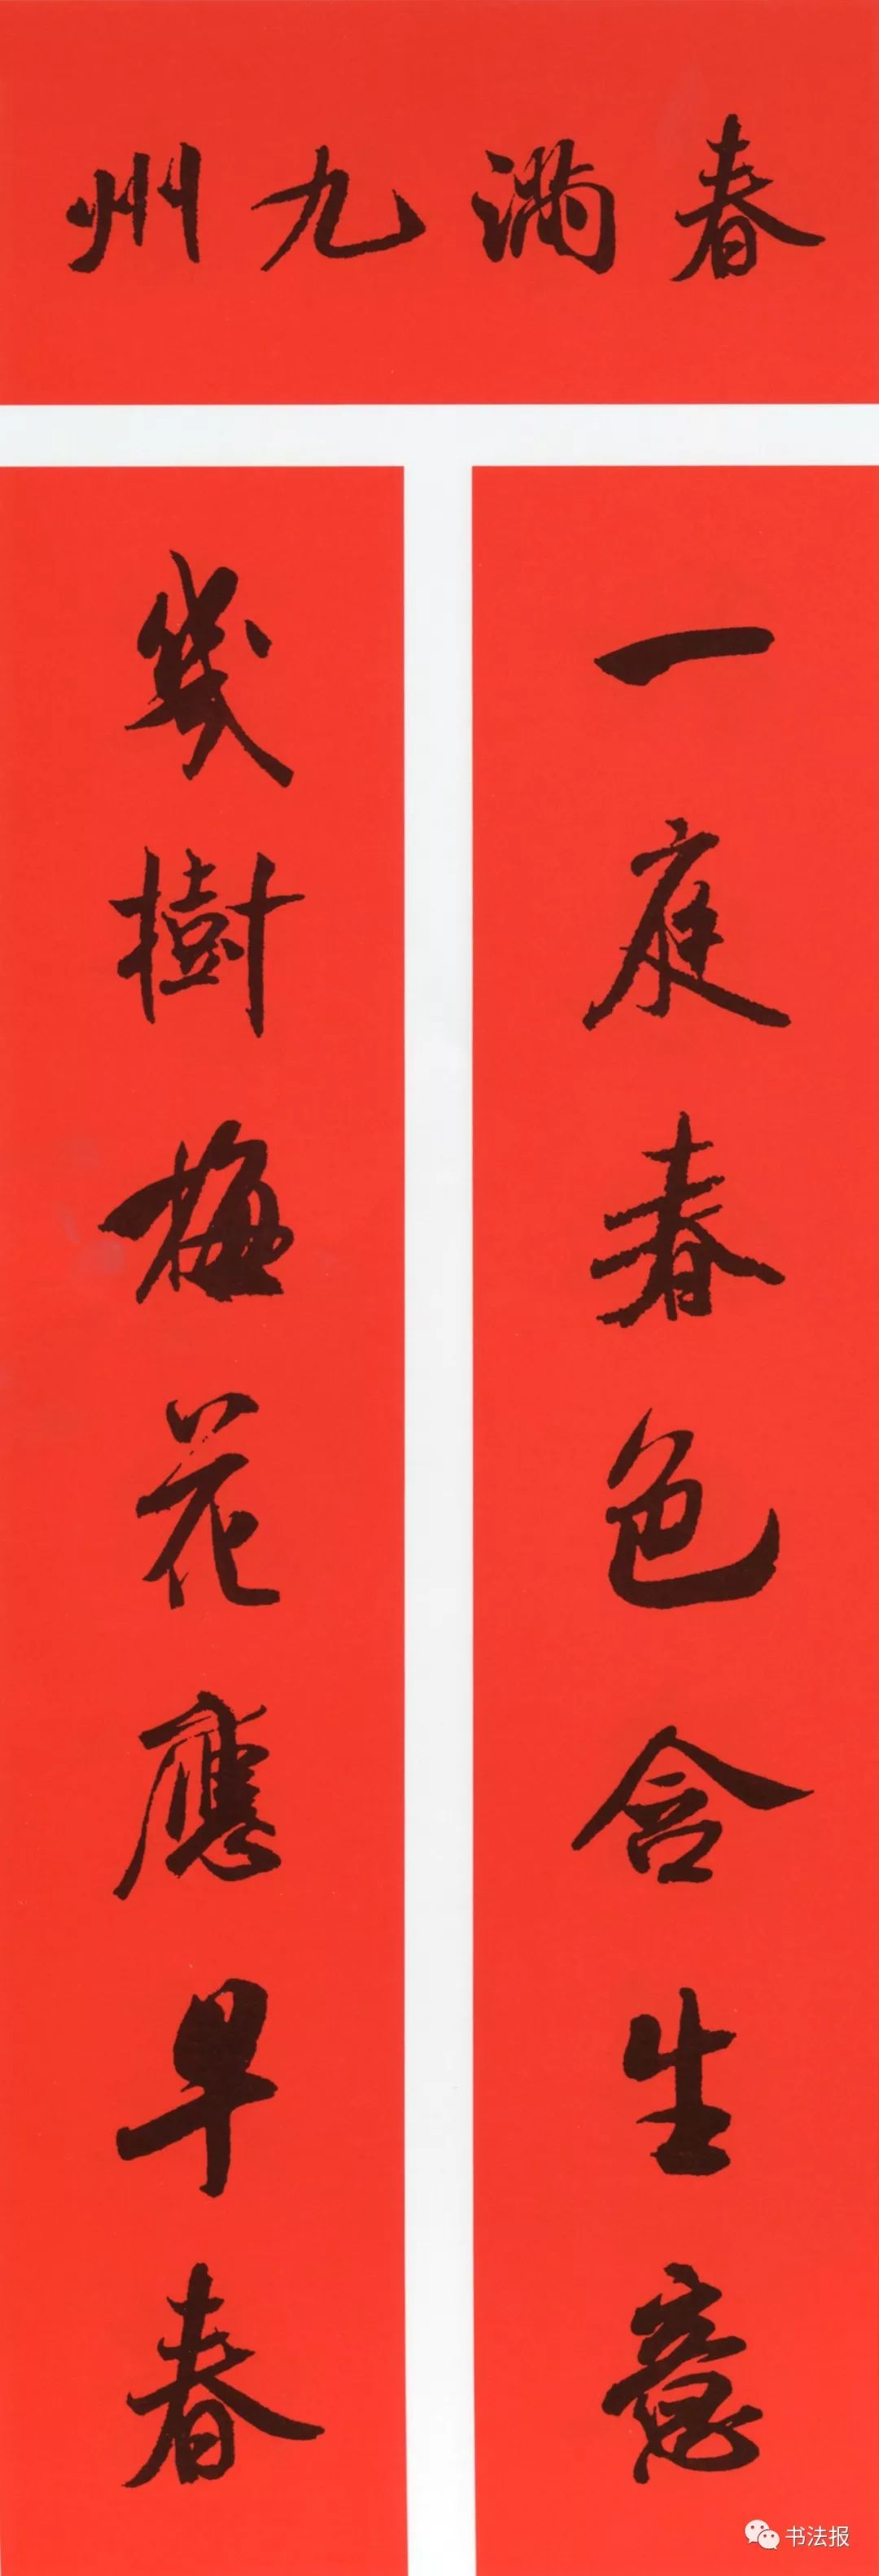 春满九州
一庭春色含生意
幾樹梅花應早春
书法报